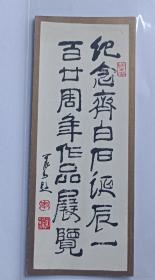 纪念齊白石诞辰一
百廿周年作品展覽